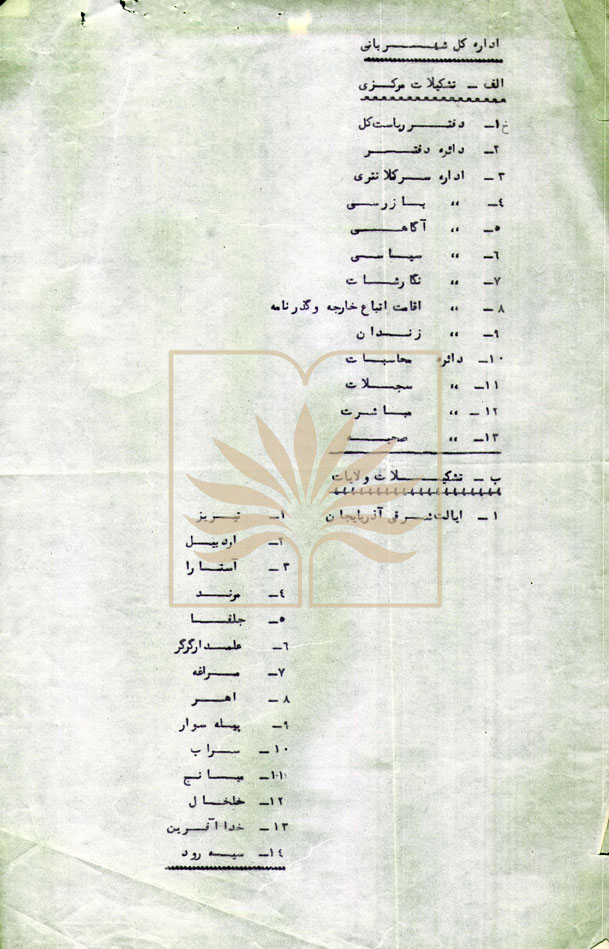 اداره کل شهربانی
الف ـ تشکیلات مرکزی
۱ـ دفتر ریاست کل
۲ـ دائره دفتر
۳ـ اداره سرکلانتری
۴ـ ,, بازرسی
۵ـ ,, آگاهی
۶ـ ,, سیاسی
۷ـ ,, نگارشات
۸ـ ,, اقامت اتباع خارجه و گذرنامه
۹ـ ,, زندان
۱۰ـ دائره محاسبات
۱۱ـ ,, سجلات
۱۲ـ ,, مباشرت
۱۳ـ ,, صحیه
ب ـ تشکیلات ولایات
۱ـ ایالت شرقی آذربایجان
۱ـ تبریز
۲ـ اردبیل
۳ـ آستارا
۴ـ مرند
۵ـ جلفا
۶ـ علمدارگرگر
۷ـ مراغه
۸ـ اهر
۹ـ پیله سوار
۱۰ـ سراب
۱۱ـ میانج
۱۲ـ خلخال
۱۳ـ خداآفرین
۱۴ـ سیه رود